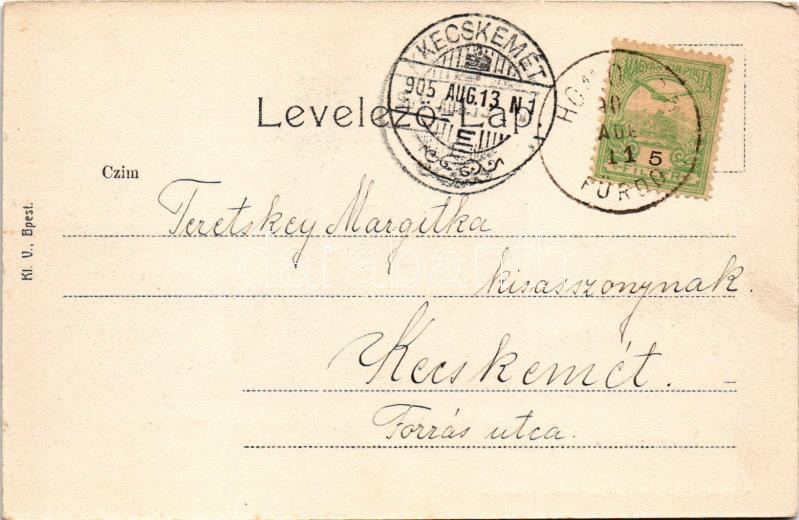 KECSKEMÉT
905 AUG. 13 N 1
MAGYAR POSTA
5
FILLÉR
AUG
11
FÜRDŐ
Levelező-Lap.
Czim
Teretskey Margitka
kisasszonynak.
Kecskemét.
Forrás utca.
Kl. V., Bpest.
darabanth